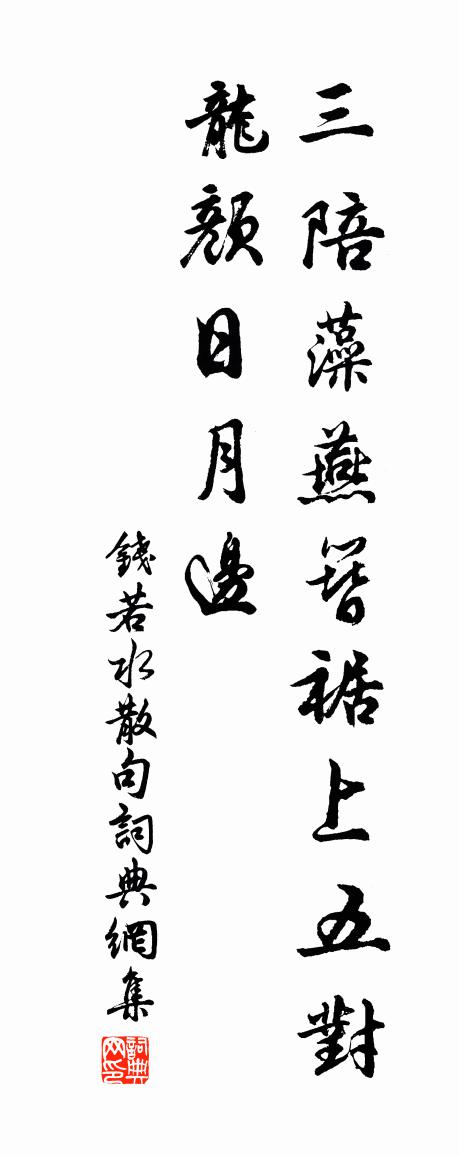 三陪藻燕簪裾上五對
龍顏日月邊
錢若水散句詞典網集
詞典网印